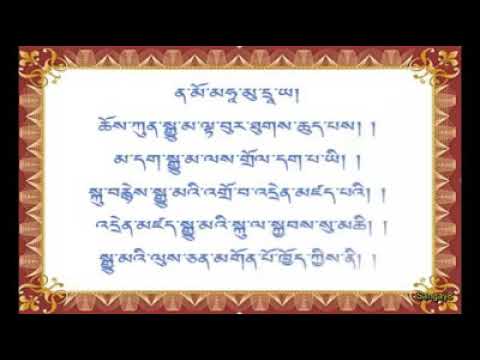 ན་མོ་མཧཱ་མུ་དྲཱ་ཡ།
ཆོས་ཀུན་སྒྱུ་མ་ལྟ་བུར་ཐུགས་ཆུད་པས། །
མ་དག་སྒྱུ་མ་ལས་གྲོལ་དག་པ་ཡི། །
སྐུ་བརྙེས་སྒྱུ་མའི་འགྲོ་བ་འདྲེན་མཛད་པའི། །
འདྲེན་མཛད་སྒྱུ་མའི་སྐུ་ལ་སྐྱབས་སུ་མཆི། །
སྒྱུ་མའི་ལུས་ཅན་མགོན་པོ་ཁྱོད་ཀྱིས་ནི། །